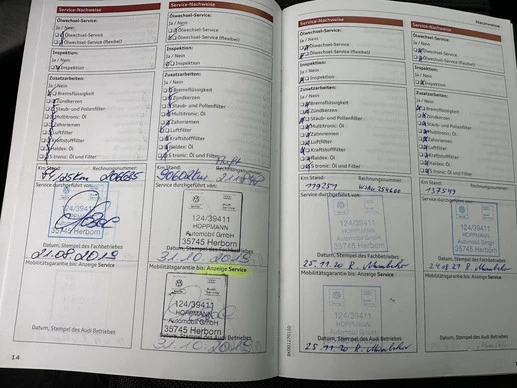 Service-Nachweise
Ölwechsel-Service:
Ja / Nein
Ölwechsel-Service
Ölwechsel-Service (flexibel)
Inspektion:
Ja / Nein
Inspektion
Zusatzarbeiten:
Ja / Nein
Bremsflüssigkeit
Zündkerzen
Staub- und Pollenfilter
Multitronic: Öl
Zahnriemen
Luftfilter
Kraftstofffilter
Haldex: Öl
S tronic: Öl und Filter
Km Stand: Rechnungsnummer:
206685
Service durchgeführt von:
124/39411
HOPPMANN
Automobil GmbH
35745 Herborn
Datum, Stempel des Fachbetriebes
21.08.2019
Mobilitätsgarantie bis: Anzeige Service
Datum, Stempel des Audi Betriebes
14
Service-Nachweise
Ölwechsel-Service:
Ja / Nein
Ölwechsel-Service
Ölwechsel-Service (flexibel)
Inspektion:
Ja / Nein
Inspektion
Zusatzarbeiten:
Ja / Nein
Bremsflüssigkeit
Zündkerzen
Staub- und Pollenfilter
Multitronic: Öl
Zahnriemen
Luftfilter
Kraftstofffilter
Haldex: Öl
S tronic: Öl und Filter
Km Stand: Rechnungsnummer:
Service durchgeführt von:
124/39411
HOPPMANN
Automobil GmbH
35745 Herborn
Datum, Stempel des Fachbetriebes
31.10.2019
Mobilitätsgarantie bis: Anzeige Service
124/39411
HOPPMANN
Automobil GmbH
35745 Herborn
Datum, Stempel des Audi Betriebes
31.10.2019
Service-Nachweise
Ölwechsel-Service:
Ja / Nein
Ölwechsel-Service
Ölwechsel-Service (flexibel)
Inspektion:
Ja / Nein
Inspektion
Zusatzarbeiten:
Ja / Nein
Bremsflüssigkeit
Zündkerzen
Staub- und Pollenfilter
Multitronic: Öl
Zahnriemen
Luftfilter
Kraftstofffilter
Haldex: Öl
S tronic: Öl und Filter
Km Stand: Rechnungsnummer:
119251
Service durchgeführt von:
124/39411
HOPPMANN
Automobil GmbH
35745 Herborn
Datum, Stempel des Fachbetriebes
25.11.20
Mobilitätsgarantie bis: Anzeige Service
124/39411
HOPPMANN
Automobil GmbH
35745 Herborn
Datum, Stempel des Audi Betriebes
25.11.20
Service-Nachweise
Ölwechsel-Service:
Ja / Nein
Ölwechsel-Service
Ölwechsel-Service (flexibel)
Inspektion:
Ja / Nein
Inspektion
Zusatzarbeiten:
Ja / Nein
Bremsflüssigkeit
Zündkerzen
Staub- und Pollenfilter
Multitronic: Öl
Zahnriemen
Luftfilter
Kraftstofffilter
Haldex: Öl
S tronic: Öl und Filter
Km Stand: Rechnungsnummer:
137549
Service durchgeführt von:
124/39411
HOPPMANN
Automobil GmbH
35745 Herborn
Datum, Stempel des Fachbetriebes
Mobilitätsgarantie bis: Anzeige Service
Datum, Stempel des Audi Betriebes
Nachweise